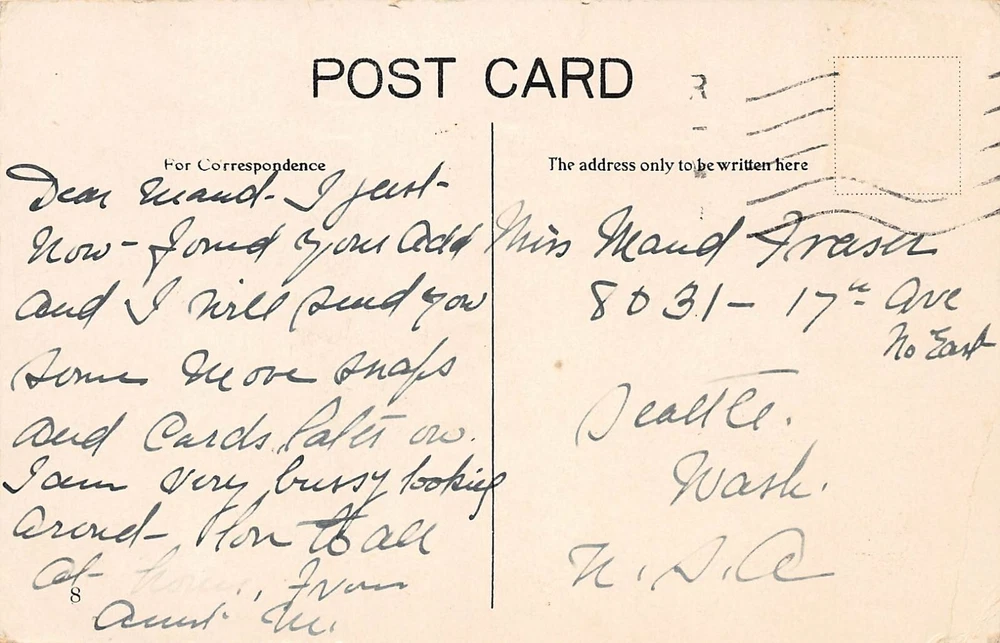 POST CARD
R
For Correspondence
The address only to be written here
Dear Maud - I just -
Now - found your Add
and I will send you
some More snaps
and Cards later on.
I am very bussy looking
Around - love to all
At home, From
8
Aunt M.
Miss Maud Fraser
8031 - 17th Ave
No East
Seattle.
Wash.
U.S.A